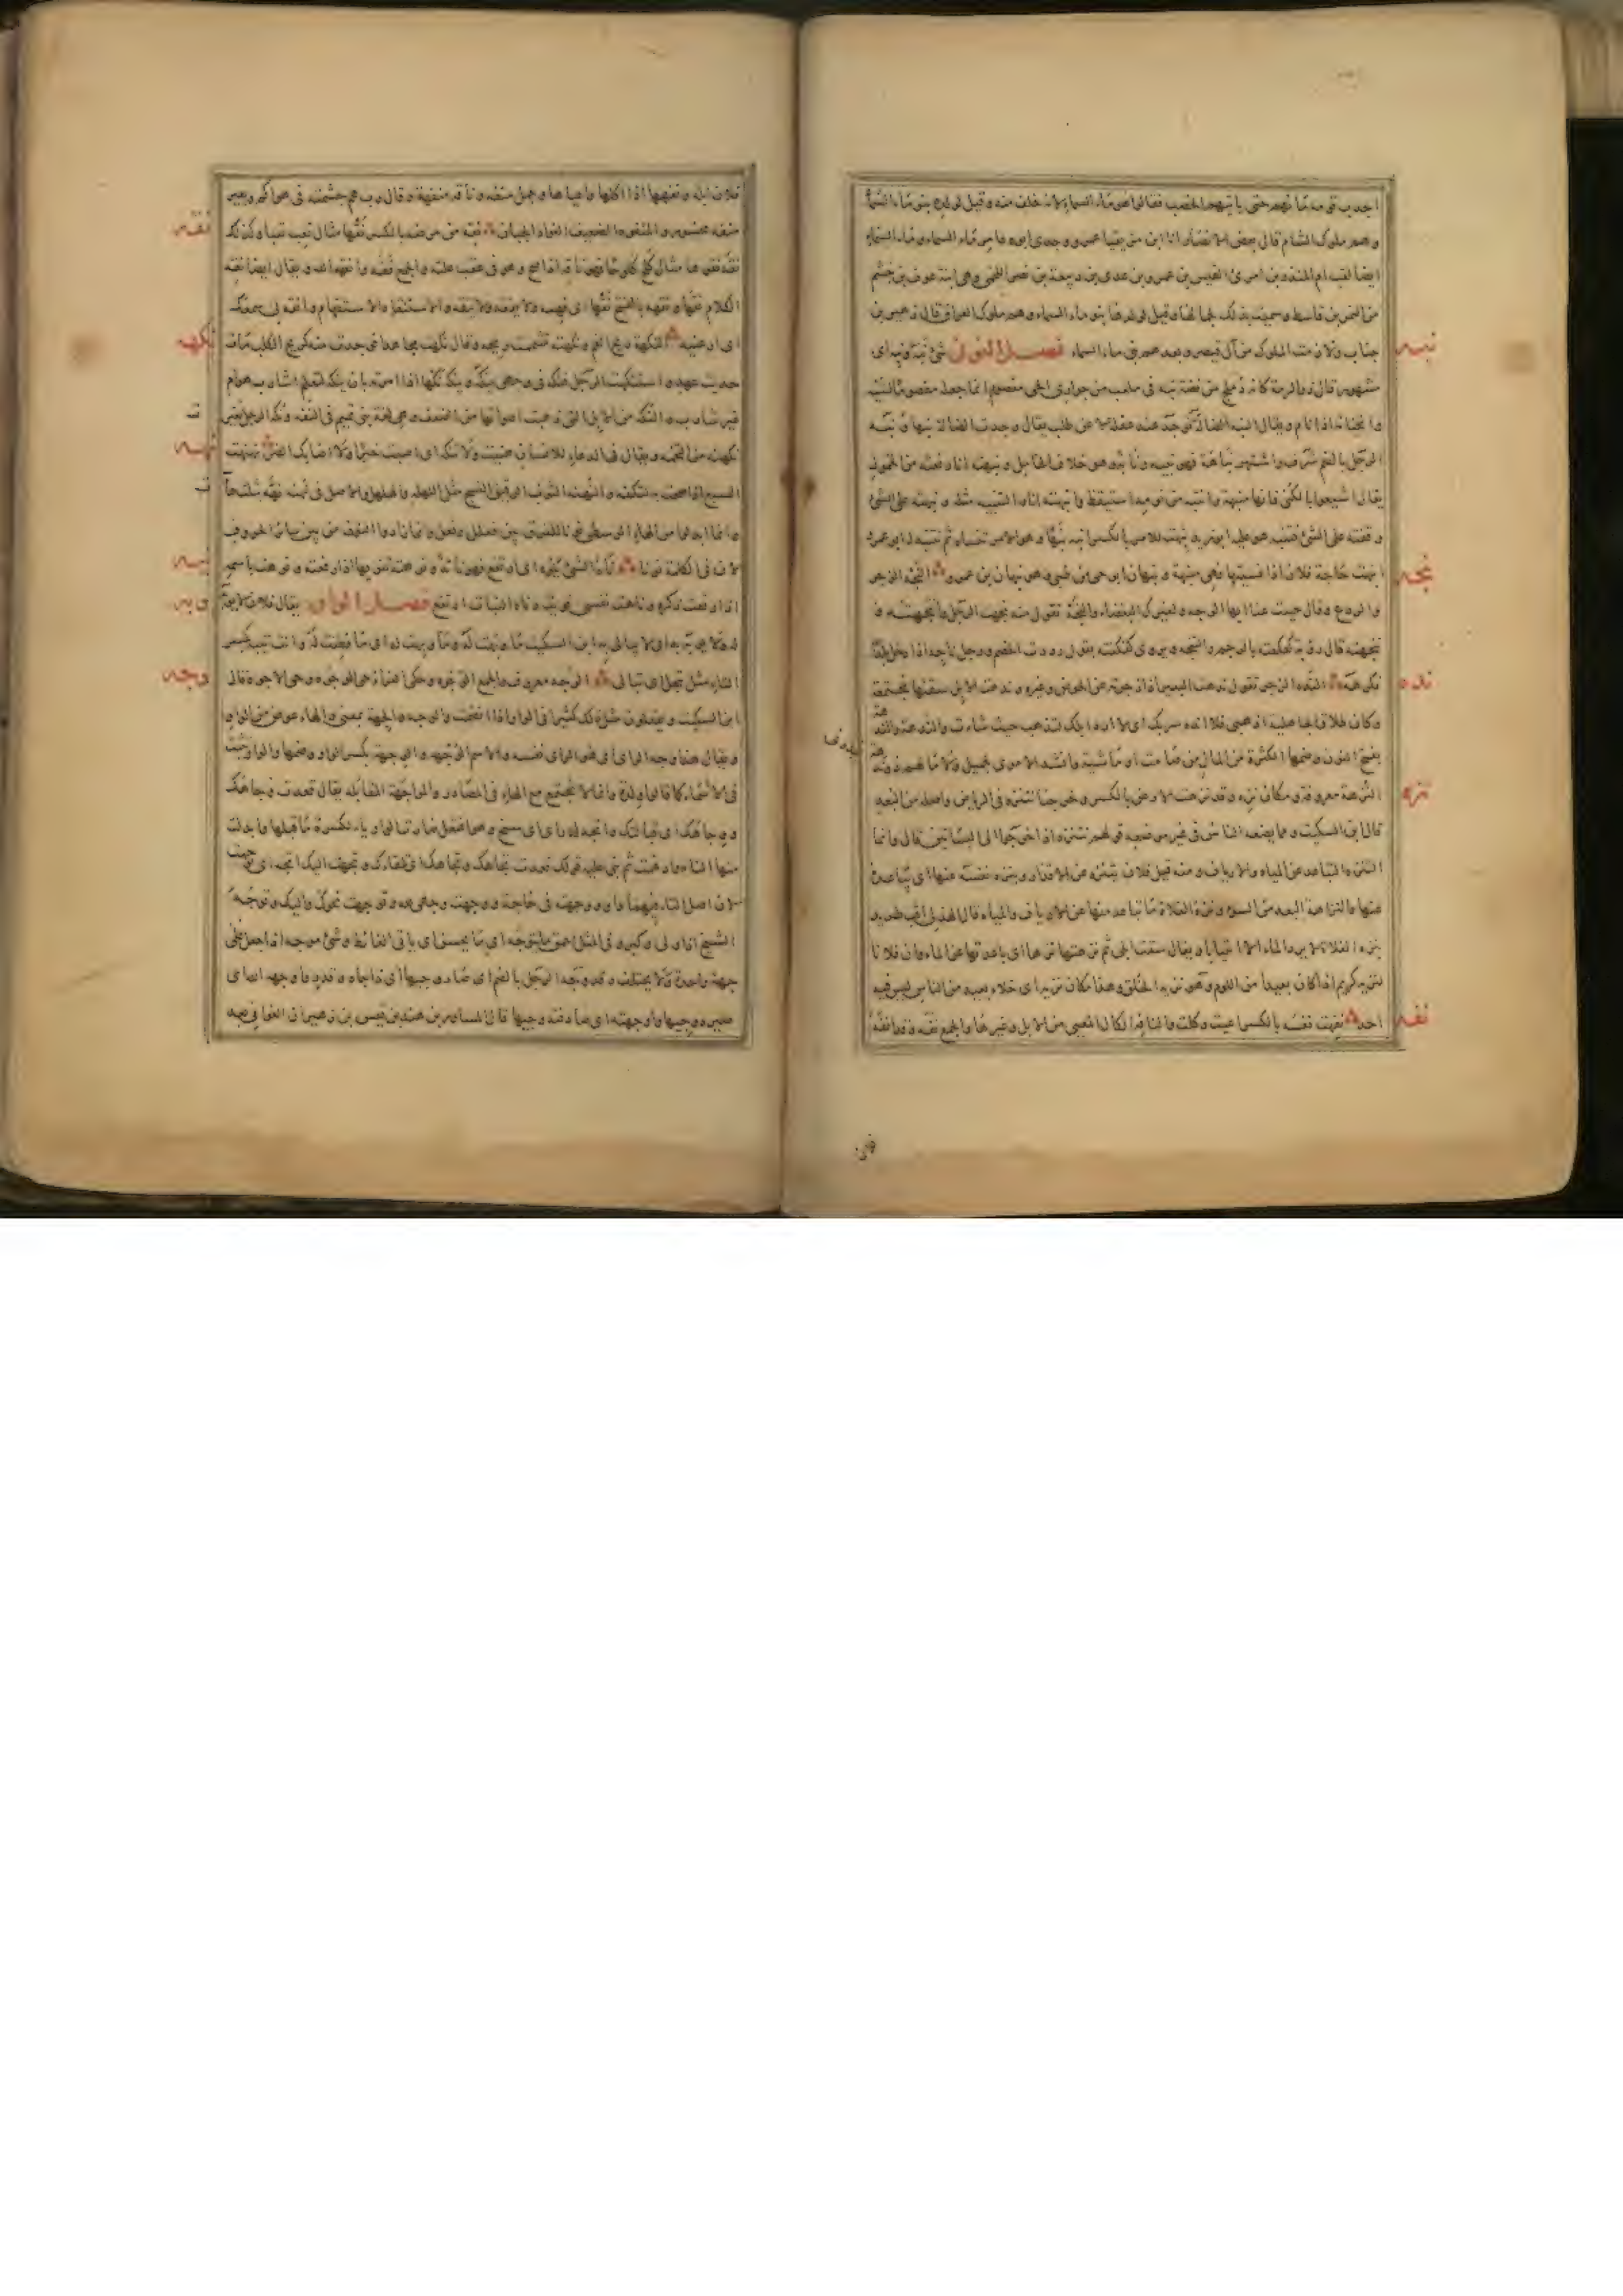 اجدب قومه مانهم حتى ياتيهم الخصب فقالوا هو ماء السماء لانه خلف منه وقيل لولده بنو ماء السماء
وهم ملوك الشام قال بعض الانصار انا ابن مزيقيا عمرو وجدى ابوه عامر ماء السماء وماء السماء
ايضا لقب ام المنذر بن امرئ القيس بن عمرو بن عدى بن ربيعة بن نصر اللخمى وهى ابنة عوف بن جشم
من النمر بن قاسط وسميت بذلك لجمالها وقيل لولدها بنو ماء السماء وهم ملوك العراق قال زهير بن
نبه
جناب ونادمت الملوك من آل قيصر وبعدهم بنى ماء السماء فصل النون شئ نبه ونبه اى
مشهور قال ذو الرمة كانه دملج من فضة نبه فى ملعب من جوارى الحى مفصوم انما جعله مفصوما لتثنيه
وانحنائه اذا نام ويقال النبه الضالة توجد عند غفلة لا عن طلب يقال وجدت الضالة نبها ونبه
الرجل بالضم شرف واشتهر نباهة فهو نبيه ونابه وهو خلاف الخامل ونبهته انا رفعته من الخمول
يقال اشيعوا بالكنى فانها منبهة وانتبه من نومه استيقظ وانبهته انا والتنبيه مثله ونبهته على الشئ
وقفته على الشئ فتنبه هو عليه ابو زيد نبهت للامر بالكسر انبه نبها وهو الامر تنساه ثم تنتبه له ابو عمرو
نجه
انبهت حاجة فلان اذا نسيتها فهى منبهة ونبهان ابو حى من طى وهو نبهان بن عمرو النجه الزجر
والردع وقال حييت عنا ايها الوجه ولغيرك البغضاء والنجه تقول منه نجهت الرجل وانتجهته و
تنجهته قال رؤبة كعكعته بالرجم والتنجه ويروى كفكفته يقول رددت الخصم ورجل ناجه اذا دخل بلدا
نده
فكرهه النده الزجر تقول ندهت البعير اذا زجرته عن الحوض وغيره وندهت الابل سقتها مجتمعة
وكان طلاق الجاهلية اذهبى فلا انده سربك اى لا ارد ابلك لتذهب حيث شاءت والندهة والندهة
بفتح النون وضمها الكثرة من المال من صامت او ماشية وانشد الاموى لجميل ولا مالهم ذو ندهة
نزه
النزهة معروفة ومكان نزه وقد نزهت الارض بالكسر وخرجنا نتنزه فى الرياض واصله من البعد
قال ابن السكيت ومما يضعه الناس فى غير موضعه قولهم نتنزه اذا خرجوا الى البساتين قال وانما
التنزه التباعد عن المياه والارياف ومنه قيل فلان يتنزه عن الاقذار وينزه نفسه عنها اى يباعدها
عنها والنزاهة البعد من السوء ونزه الفلاة ما تباعد منها عن الارياف والمياه قال الهذلى اقب طريد
بنزه الفلاة لا يرد الماء الا انتيابا ويقال سقيت ابلى ثم نزهتها نزها اى باعدتها عن الماء وان فلانا
لنزيه كريم اذا كان بعيدا من اللوم وهو نزيه الخلق وهذا مكان نزيه اى خلاء بعيد من الناس ليس فيه
نفه
احد نفهت نفسه بالكسر اعيت وكلت والنافه الكال المعيى من الابل وغيرها والجمع نفه وقد انفه
فلان ابله ونفهها اذا اكلها واعياها وجمل منفه وناقة منفهة وقال رب هم جشمته فى هواكم وبعير
نقه
منفه محسور والمنفوه الضعيف الفؤاد الجبان نقه من مرضه بالكسر نقها مثال تعب تعبا وكذلك
نقه نقوها مثال كلح كلوحا فهو ناقه اذا صح وهو فى عقب علته والجمع نقه وانقهه الله ويقال ايضا نقه
الكلام نقها ونقهه بالفتح نقها اى فهمه ولا يفقه ولا ينقه والاستنقاه الاستفهام وانقه لى سمعك
نكه
اى ارعنيه النكهة ريح الفم ونكهته تشممت ريحه وقال نكهت مجالدا فوجدت منه كريح الكلب مات
حديث عهد واستنكهت الرجل فنكه فى وجهى ينكه وينكه نكها اذا امرته بان ينكه لتعلم اشارب هو ام
غير شارب والنكه من الابل التى ذهبت اصواتها من الضعف وهى لغة بنى تميم فى النفه ونكه الرجل تغيرت
نهنه
نكهته من التخمة ويقال فى الدعاء للانسان هنيت ولا تنكه اى اصبت خيرا ولا اصابك الضر نهنهت
السبع اذا صحت به لتكفه والنهنه الثوب الرقيق النسج مثل اللهله والهلهل والاصل فى نهنه نهه بثلث هاءات
وانما ابدلوا من الهاء الوسطى نونا للفرق بين فعلل وفعل وانما زادوا النون من بين سائر الحروف
نوه
لان فى الكلمة نونا ناه الشئ ينوه اى ارتفع فهو نائه ونوهته تنويها اذا رفعته ونوهت باسمه
وبه
اذا رفعت ذكره وناهت نفسى قويت وناه النبات ارتفع فصل الواو يقال فلان لا يوبه
له ولا يوبه به اى لا يبالى به ابن السكيت ما وبهت له وما وبهت له اى ما فطنت له وانت تيبه بكسر
وجه
التاء مثل تيجل اى تبالى الوجه معروف والجمع الوجوه وحكى الفراء حى الوجوه وحى الاجوه قال
ابن السكيت ويفعلون مثل ذلك كثيرا فى الواو اذا انضمت والوجه والجهة بمعنى والهاء عوض من الواو
ويقال هذا وجه الراى اى هو الراى نفسه والاسم الوجهة والوجهة بكسر الواو وضمها والواو تثبت
فى الاسماء كما قالوا ولدة وانما لا تجتمع مع الهاء فى المصادر والمواجهة المقابلة يقال قعدت وجاهك
ووجاهك اى قبالتك واتجه له راى اى سنح وهو افتعل صارت الواو ياء لكسرة ما قبلها وابدلت
منها التاء وادغمت ثم بنى عليه قولك قعدت تجاهك وتجاهك اى تلقاءك وتجهت اليك اتجه اى توجهت
لان اصل التاء فيهما واو ووجهته فى حاجة ووجهت وجهى لله وتوجهت نحوك واليك وتوجه
الشيخ اذا ولى وكبر وفى المثل احمق ما يتوجه اى ما يحسن ان ياتى الغائط وشئ موجه اذا جعل على
جهة واحدة ولا يختلف وقد وجه الرجل بالضم اى صار وجيها اى ذا جاه وقدر واوجهه الله اى
صيره وجيها واوجهته اى صادفته وجيها قال المساور بن هند بن قيس بن زهير ان الغوانى بعد
فلان